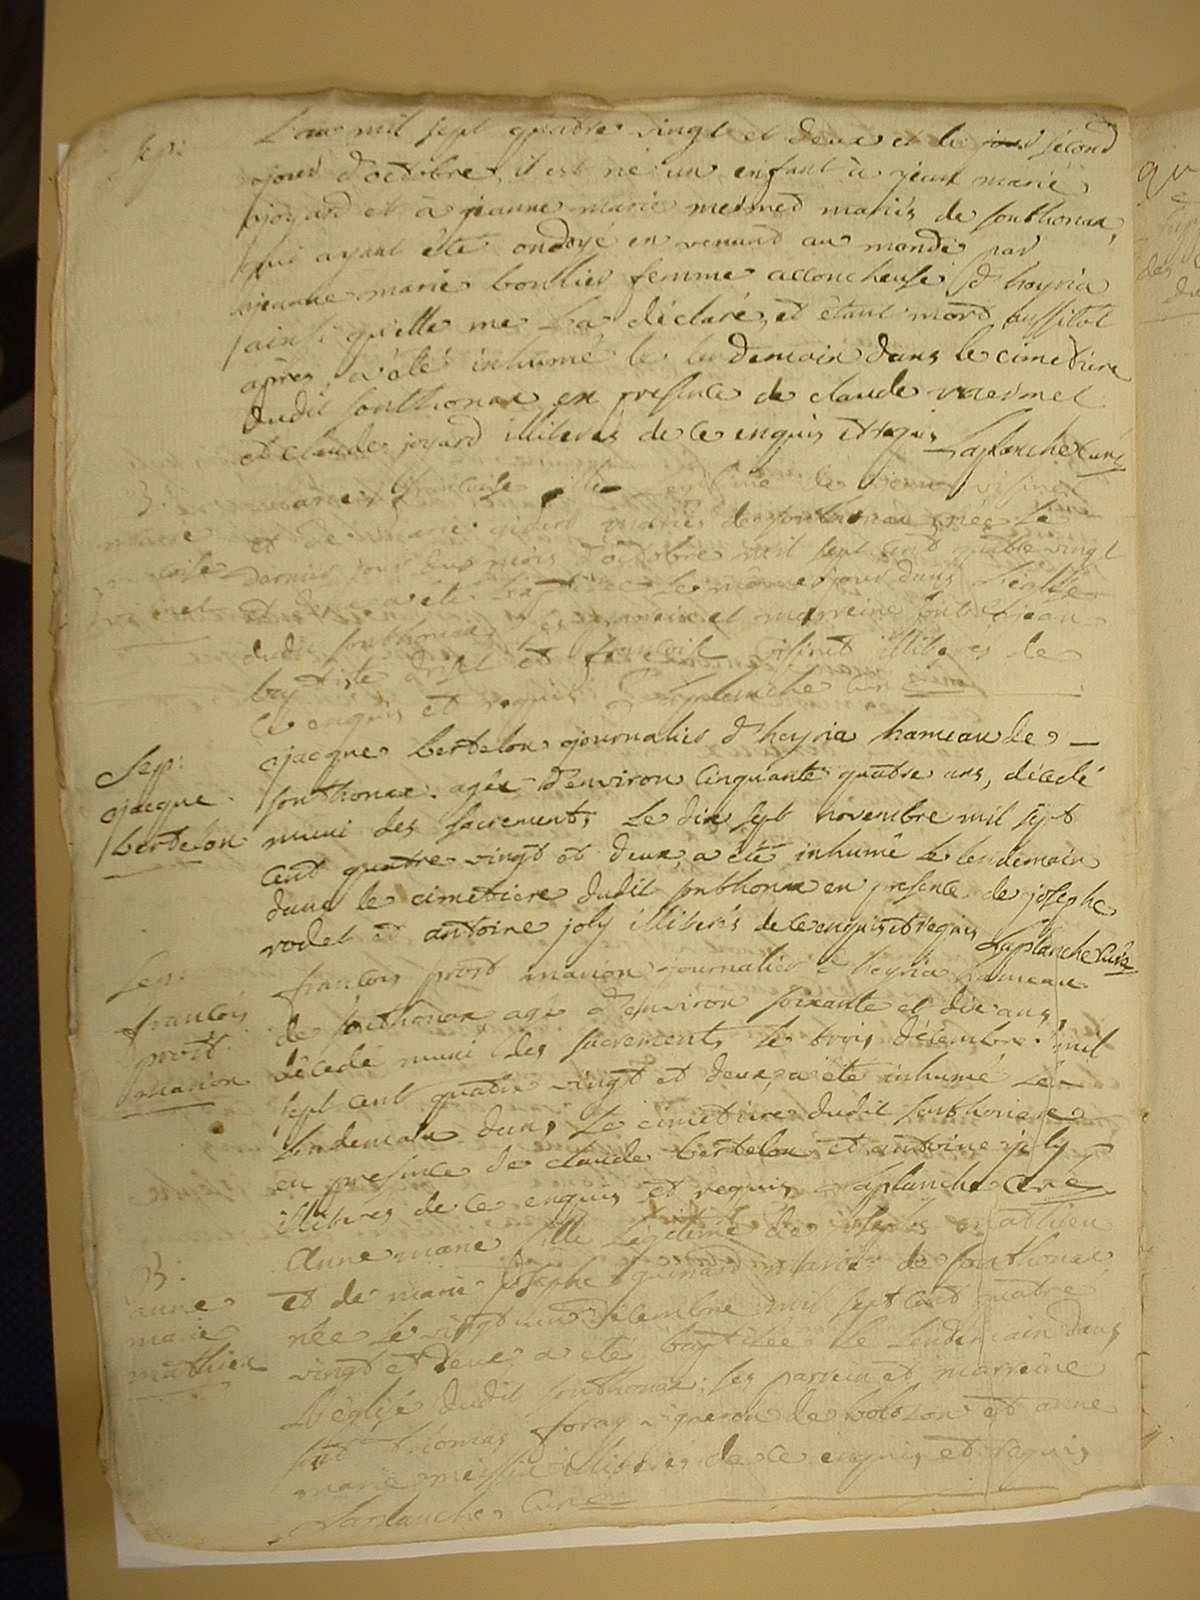 Sep:
L'an mil sept quatre vingt et deux et le jour sécond
jour d'octobre, il est né un enfant à jean marie
joyard et à jeanne marie mermed mariés de sonthonax,
qui ayant été ondoyé en venant au monde par
jeanne marie bonllier femme accoucheuse d'heyria
ainsi qu'elle me l'a déclaré, et étant mort aussitot
après, a été inhumé le lendemain dans le cimetiere
dudit sonthonax en presence de claude mermet
et claude joyard illiterés de ce enquis et requis Laplanche Curé
B:
marie françoise fille légitime de
et de marie mariés de sonthonax née le
dernier jour du mois d'octobre mil sept cent quatre vingt
et deux a été baptisée le même jour dans l'église
dudit sonthonax ses parrein et marreine sont jean
baptiste et françoise illiterés de
ce enquis et requis Laplanche Curé
Sep:
jacque
bertelon
jacque bertelon journalier d'heyria hameau de
sonthonax. agée d'environ cinquante quatre ans, décédé
muni des sacrements, le dix sept novembre mil sept
cent quatre vingt et deux, a été inhumé le lendemain
dans le cimetiere dudit sonthonax en presence de josephe
rodet et antoine joly illiterés de ce enquis et requis Laplanche Curé
Sep:
françois
prost
manon
francois prost manon journalier d'heyria hameau
de sonthonax agé d'environ soixante et dix ans,
décédé muni des sacrements le trois décembre mil
sept cent quatre vingt et deux, a été inhumé le
lendemain dans le cimetiere dudit sonthonax
en presence de claude bertelon et antoine joly
illiteres de ce enquis et requis Laplanche Curé
B:
anne
marie
mathieu
Anne marie fille légitime de mathieu
et de marie josephe guinard mariés de sonthonax
née le vingt un décembre mil sept cent quatre
vingt et deux, a été baptisée le lendemain dans
l'église dudit sonthonax; ses parrein et marreine
sont thomas foray vigneron de volozon et anne
marie illiterés de ce enquis et requis
Laplanche Curé